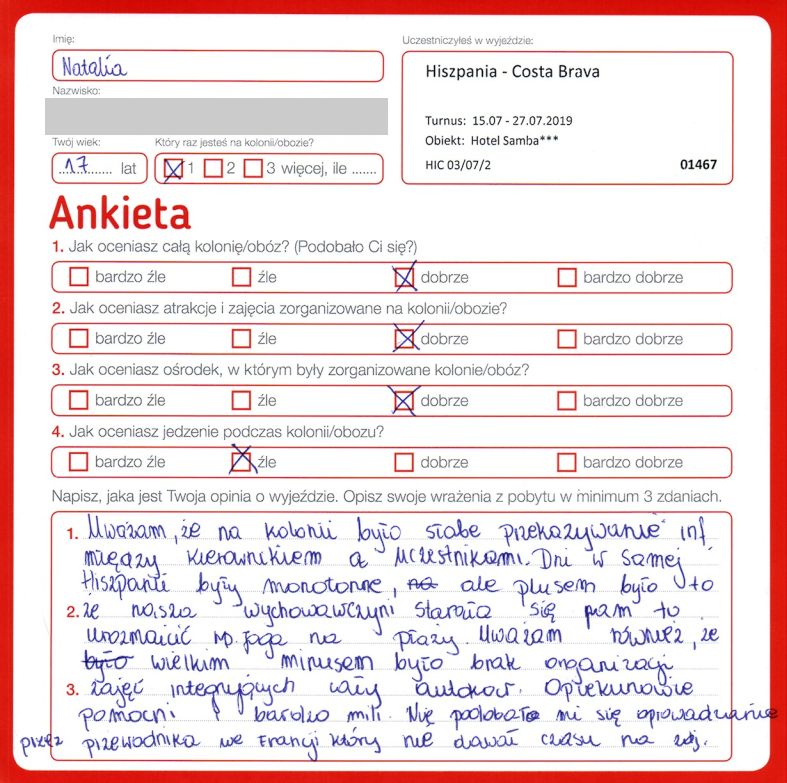 Imię:
Natalia
Nazwisko:
Twój wiek:
17 lat
Który raz jesteś na kolonii/obozie?
1 2 3 więcej, ile .......
Uczestniczyłeś w wyjeździe:
Hiszpania - Costa Brava
Turnus: 15.07 - 27.07.2019
Obiekt: Hotel Samba***
HIC 03/07/2 01467
Ankieta
1. Jak oceniasz całą kolonię/obóz? (Podobało Ci się?)
bardzo źle źle dobrze bardzo dobrze
2. Jak oceniasz atrakcje i zajęcia zorganizowane na kolonii/obozie?
bardzo źle źle dobrze bardzo dobrze
3. Jak oceniasz ośrodek, w którym były zorganizowane kolonie/obóz?
bardzo źle źle dobrze bardzo dobrze
4. Jak oceniasz jedzenie podczas kolonii/obozu?
bardzo źle źle dobrze bardzo dobrze
Napisz, jaka jest Twoja opinia o wyjeździe. Opisz swoje wrażenia z pobytu w minimum 3 zdaniach.
1. Uważam, że na kolonii było słabe przekazywanie inf
między kierownikiem a uczestnikami. Dni w samej
Hiszpanii były monotonne, na ale plusem było to
2. że nasza wychowawczyni starała się nam to
urozmaicić np. joga na plaży. Uważam również, że
było wielkim minusem było brak organizacji
3. zajęć integrujących cały autokar. Opiekunowie
pomocni i bardzo mili. Nie podobało mi się oprowadzanie
przez przewodnika we Francji który nie dawał czasu na zdj.